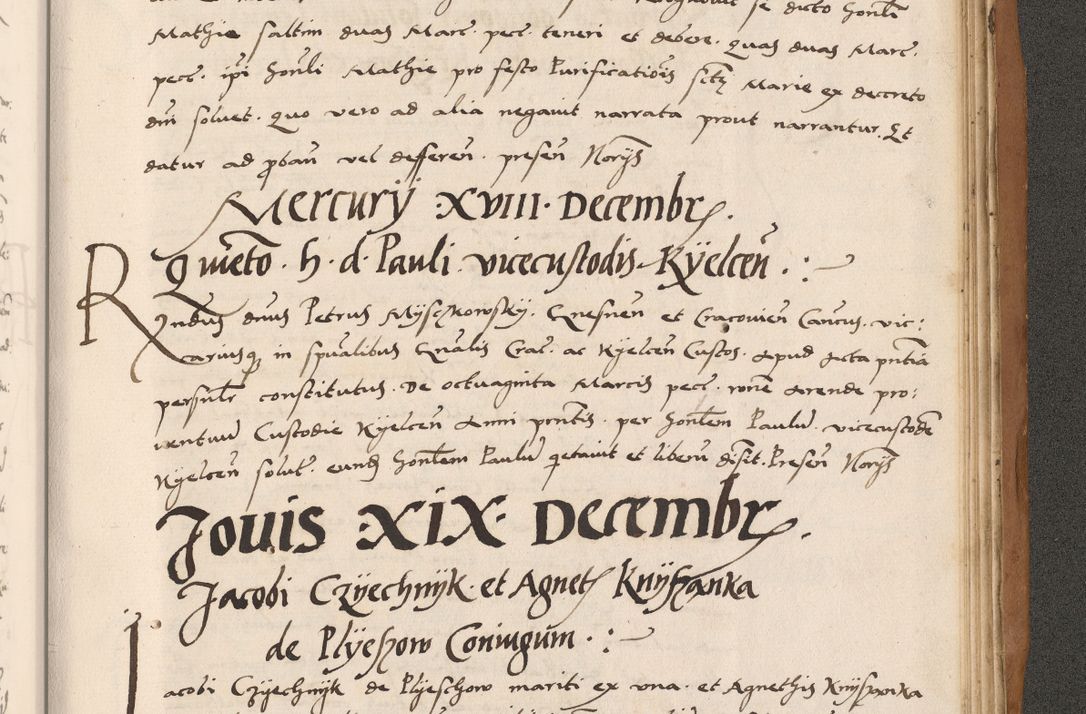 Mathie saltim duas Marc. pec. teneri et debere. quas duas Marc.
pec. ipi honli Mathie pro festo Purificatiois sctę Marie ex decreto
dni soluet. quo vero ad alia negauit narrata prout narrantur. Et
datur ad pban vel defferen. presen Norijs
Mercurij XVIII Decembr.
Quieto. h. d. Pauli vicecustodis Kÿelcen.
Rndus dnus Petrus Mÿszkowskÿ. Gnesnen et Cracouien Cancus. vic:
cariusq in spualibus Gnalis Crac. ac Kÿelcen Custos. Apud Acta pntia
personlr constitutus. De octuaginta Marcis pec. rone Arende pro:
uentuu Custodie Kÿelcen Anni pntis. per honlem Paulu vicecustode
Kÿelcen solut. eund honlem Paulu qetauit et liberu dīsit. Presen Norijs
Jouis XIX Decembr.
Jacobi Czÿechnÿk et Agnet Knÿszanka
de Plÿeszow Coniugum.
Jacobi Czÿechnÿk de Plÿeschow mariti ex vna. et Agnethis Knÿszanka